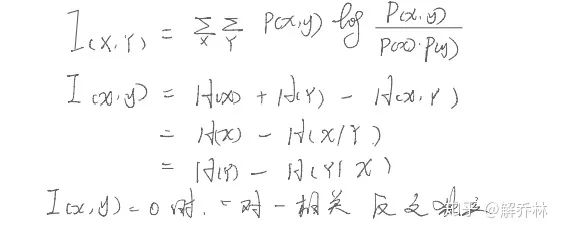 I(X,Y) = ∑X ∑Y P(x,y) log P(x,y) / P(x)·P(y)
I(x,y) = H(x) + H(Y) - H(x,Y)
= H(x) - H(X/Y)
= H(Y) - H(Y|X)
I(x,y)=0时. 一对一相关 反之
知乎 @解乔林